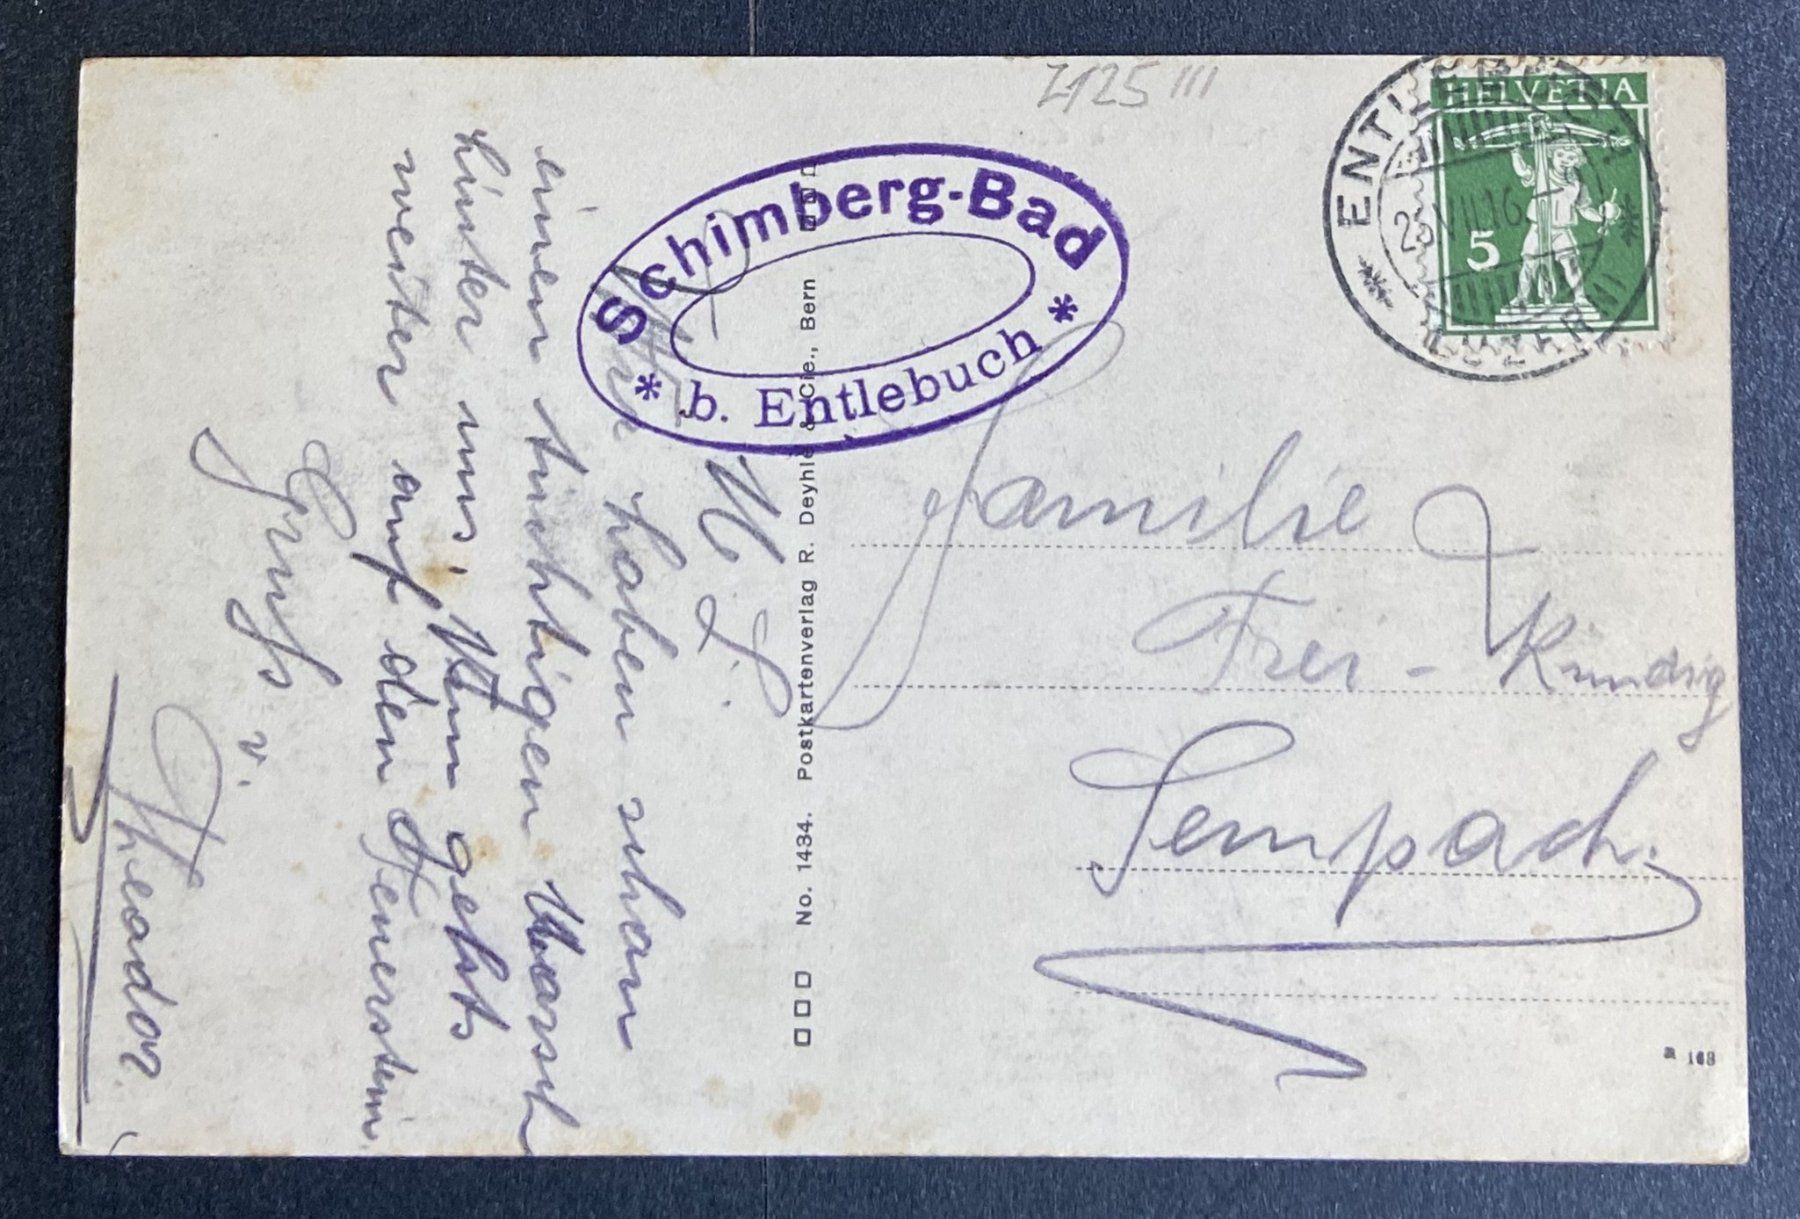 Z125 III
HELVETIA
5
ENTLEBUCH
VII.16
(LUZERN)
Schimberg-Bad
* b. Entlebuch *
No. 1434. Postkartenverlag R. Deyhle & Cie., Bern
M. L.
Wir haben schon
einen tüchtigen Marsch
hinter uns. Nun gehts
weiter auf den Feuerstein
Gruss v.
Theodor.
Familie
Frei - Kündig
Sempach.
168